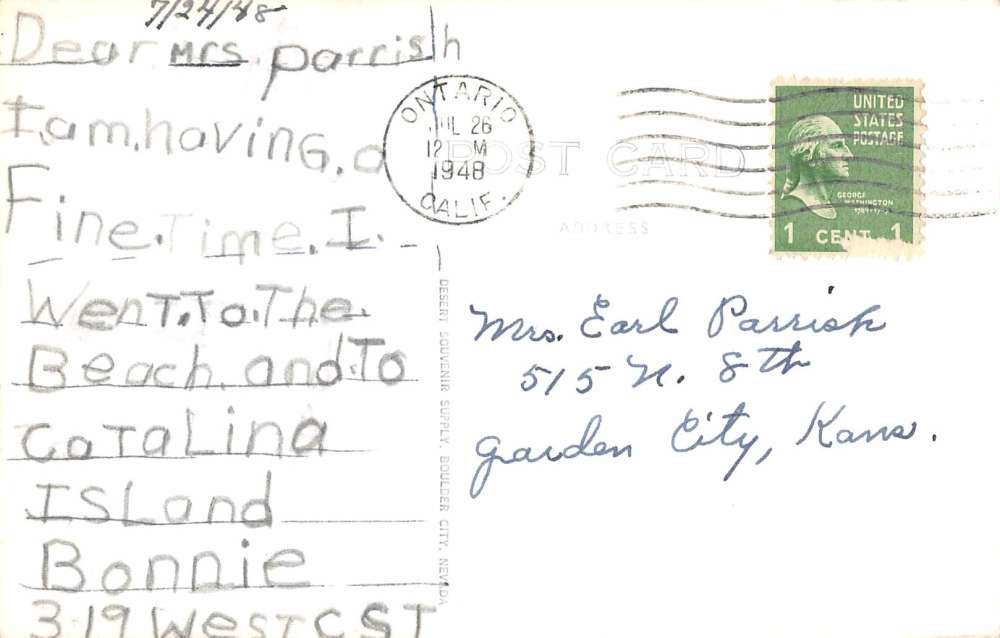 7/24/48
Dear Mrs. parrish
I.am.having.a
Fine.Time.I.
WenT.To.The.
Beach.and.To
CaTaLina
ISLand
Bonnie
319 WesT C ST
ONTARIO
JUL 26
12 M
1948
CALIF.
POST CARD
ADDRESS
UNITED
STATES
POSTAGE
GEORGE
WASHINGTON
1789-1797
1 CENT 1
Mrs. Earl Parrish
515 N. 8th
Garden City, Kans.
DESERT SOUVENIR SUPPLY, BOULDER CITY, NEVADA